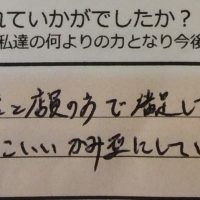 れていかがでしたか？
私達の何よりの力となり今後
と店員の方で満足して
こいい かみ型にしてい